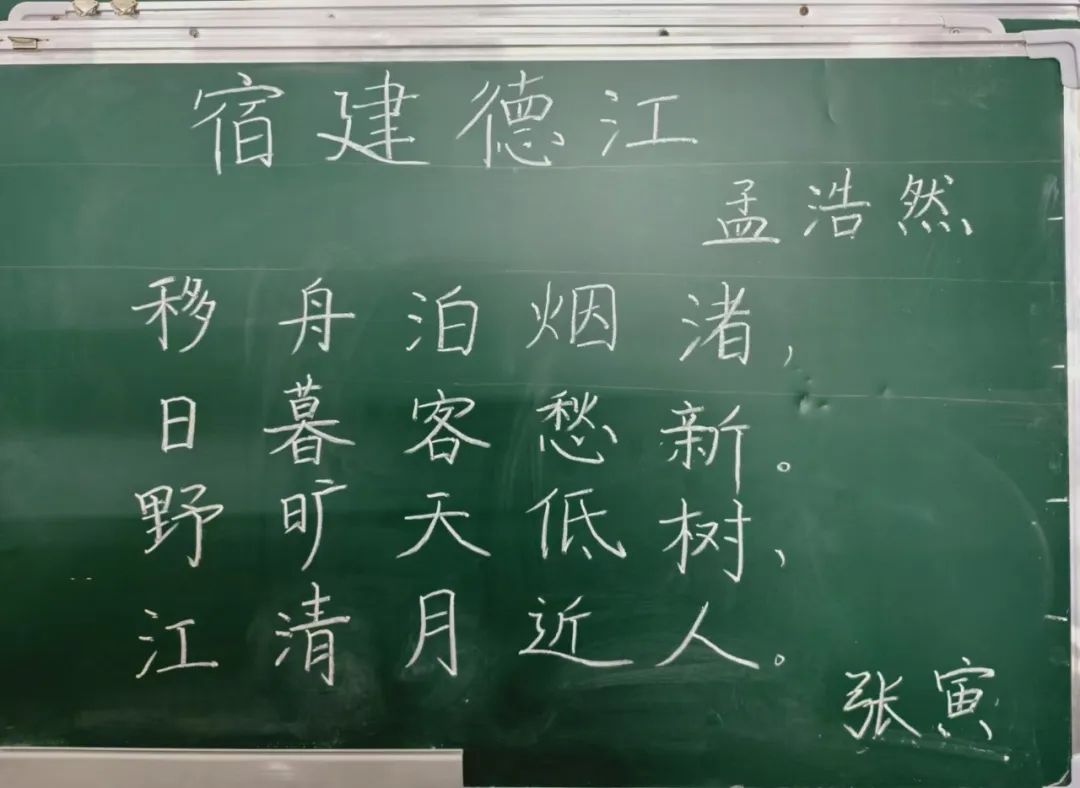 宿建德江
孟浩然
移舟泊烟渚,
日暮客愁新。
野旷天低树,
江清月近人。
张寅